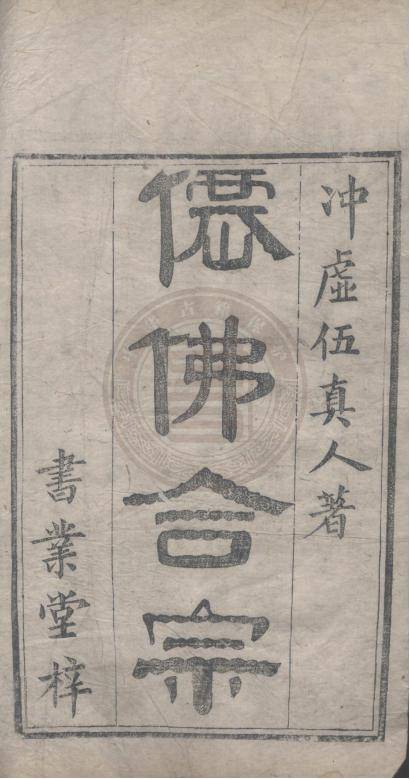 冲虛伍真人著
僊佛合宗
書業堂梓